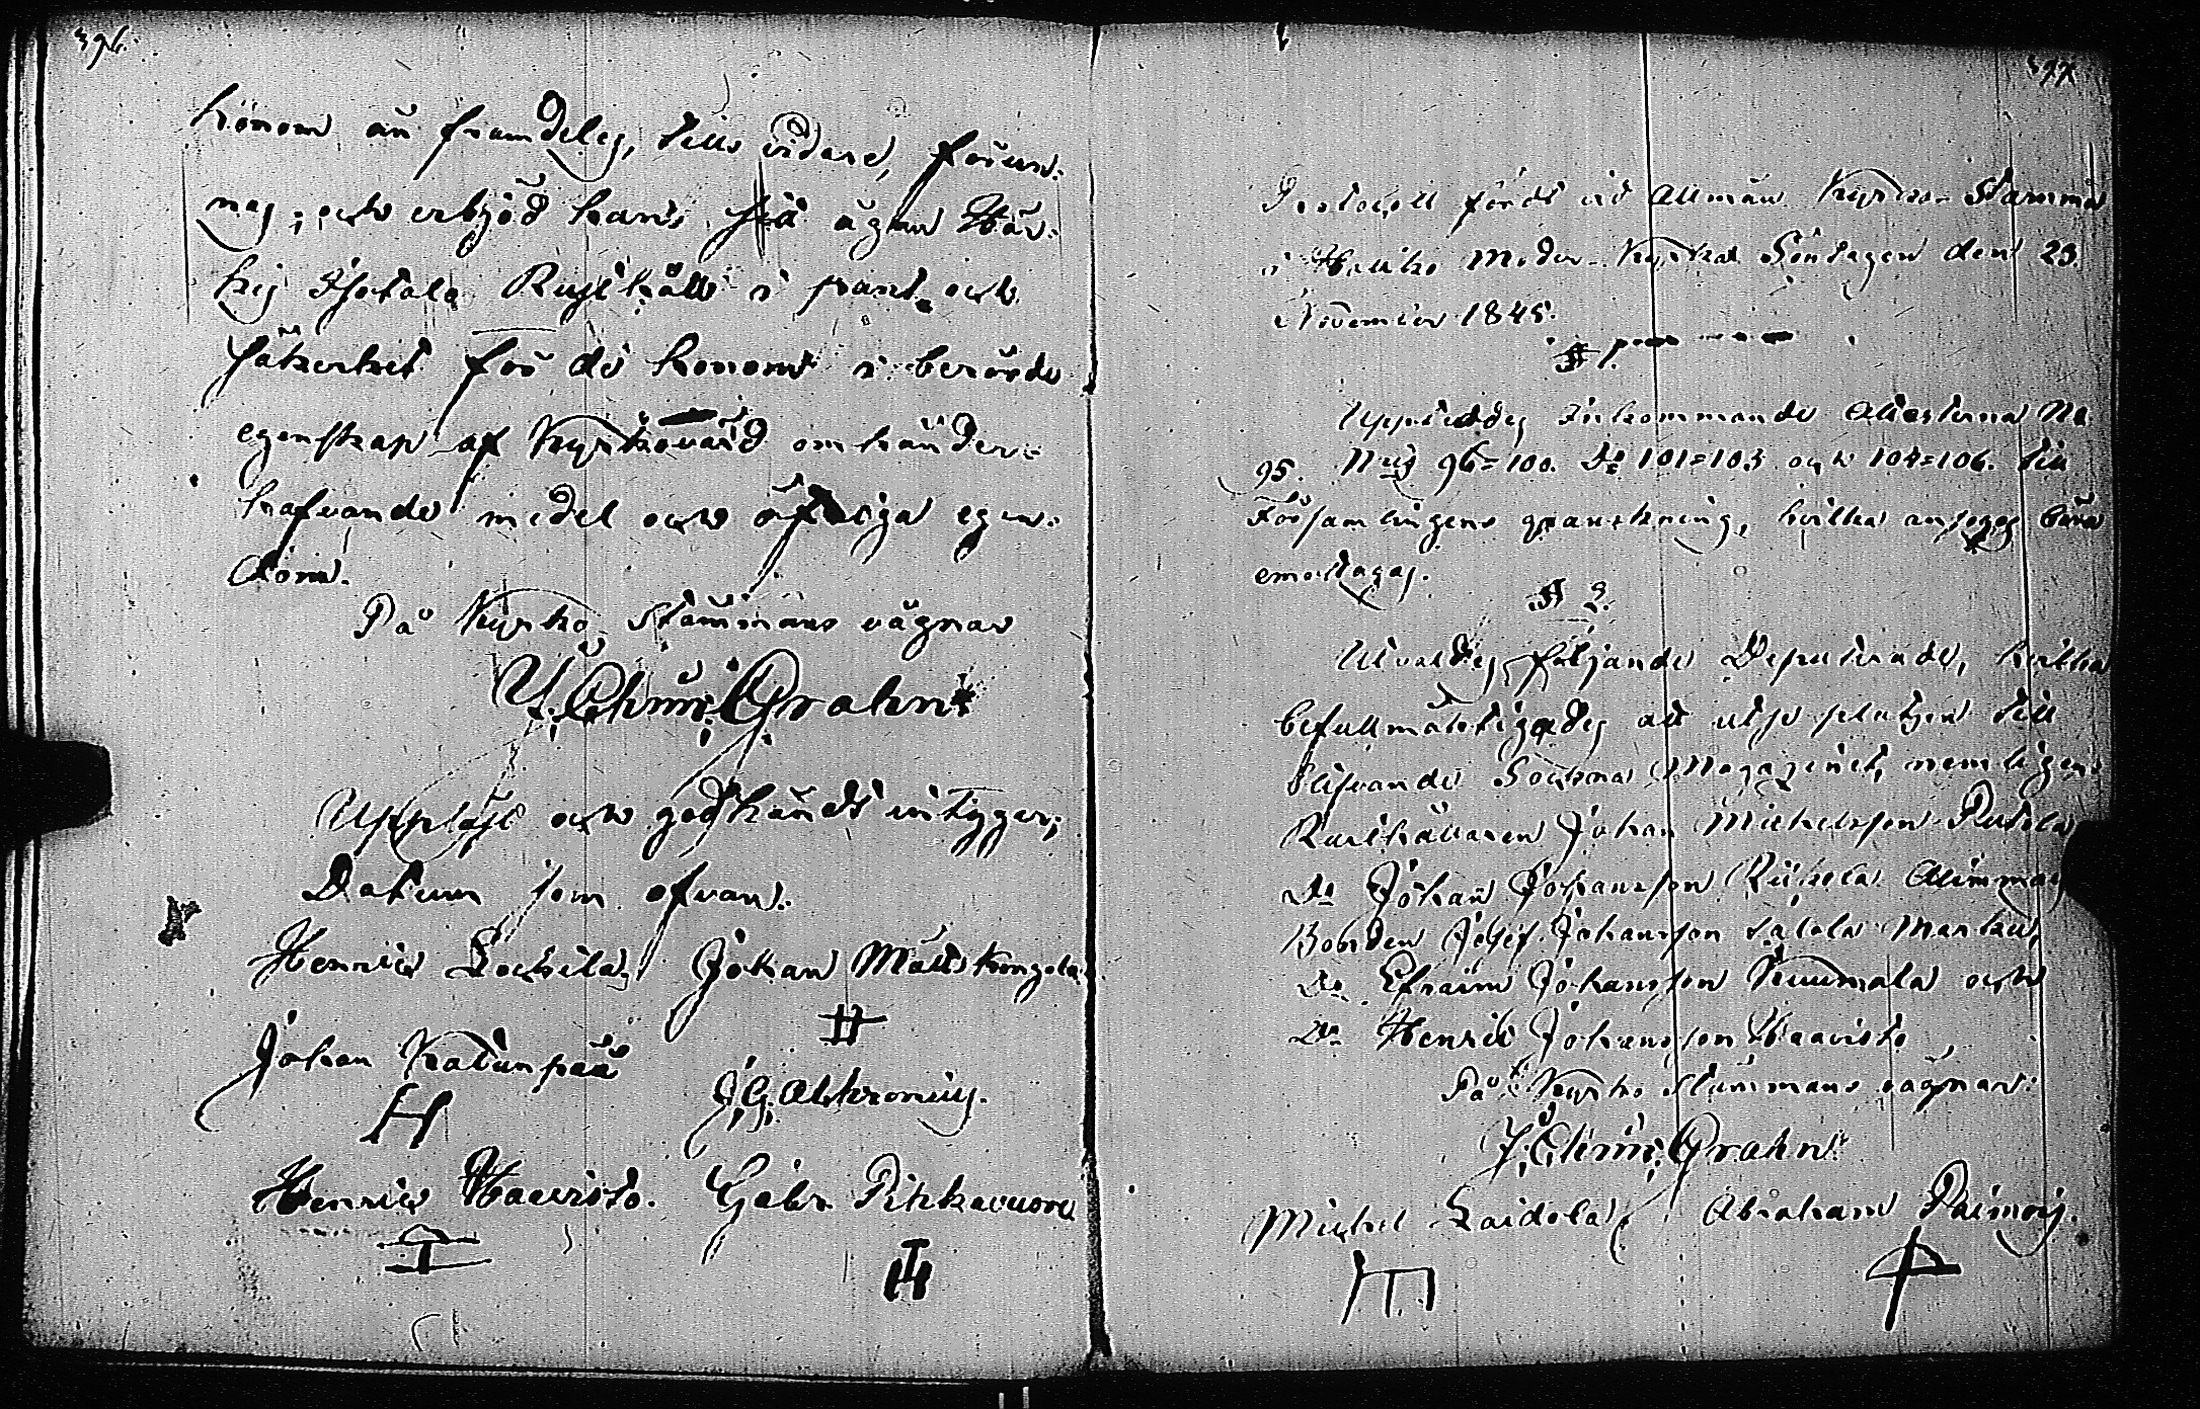 396.
honom än framdeles, tills vidare, förun-
nas; och erbjöd hans egen Här-
kis Isotalo Rusthåll i pant och
säkerhet för de honom i berörde
egenskap af Kyrkovärd omhänder-
hafvande medel och öfriga egen-
dom.
På Kyrko Stämmans vägnar
Grahn
Uppläst och godkändt intyger;
Datum som ofvan.
Henric Johan Matts
Johan
J: G:
Henric Haavisto. Gabr. Pitkävuori
397
Protocoll fördt vid Allmän Kyrko Stämma
i Moder Kyrka Söndagen den 23.
November 1845.
§ 1.
Upplästes Inkommande Attesterna No
95. No 96=100. Do 101=103 och 104=106. till
Församlingens granskning, hvilka ansågos böra
emottagas.
§ 2.
Utvaldes följande Deputerade, hvilka
befullmäktigades att utse platzen till
blifvande Sockne Magazinet, nemligen:
Rusthållaren Johan Michelsson
Do Johan Johansson
Bonden Josef Johansson
Do Efraim Johansson och
Do Henric Johansson Haavisto
På Kyrko Stämmans vägnar:
Grahn
Michel Abraham